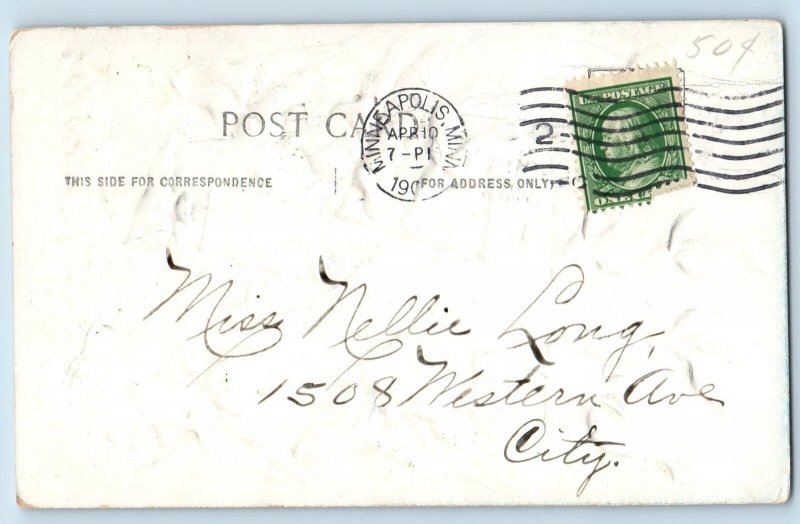 50¢
U.S. POSTAGE
POST CARD
MINNEAPOLIS, MINN.
APR 10
7-P
190
2
THIS SIDE FOR CORRESPONDENCE
FOR ADDRESS ONLY
ONE
Miss Nellie Long,
1508 Western Ave
City.